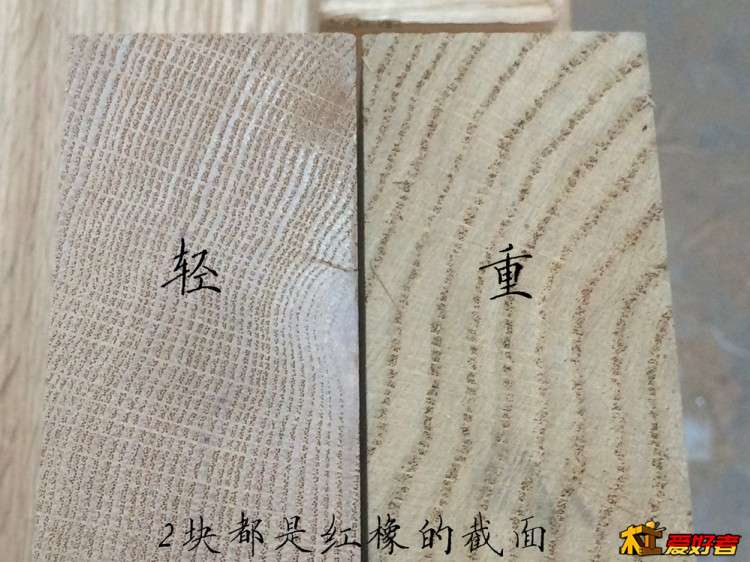 轻 重
2块都是红橡的截面
木工爱好者